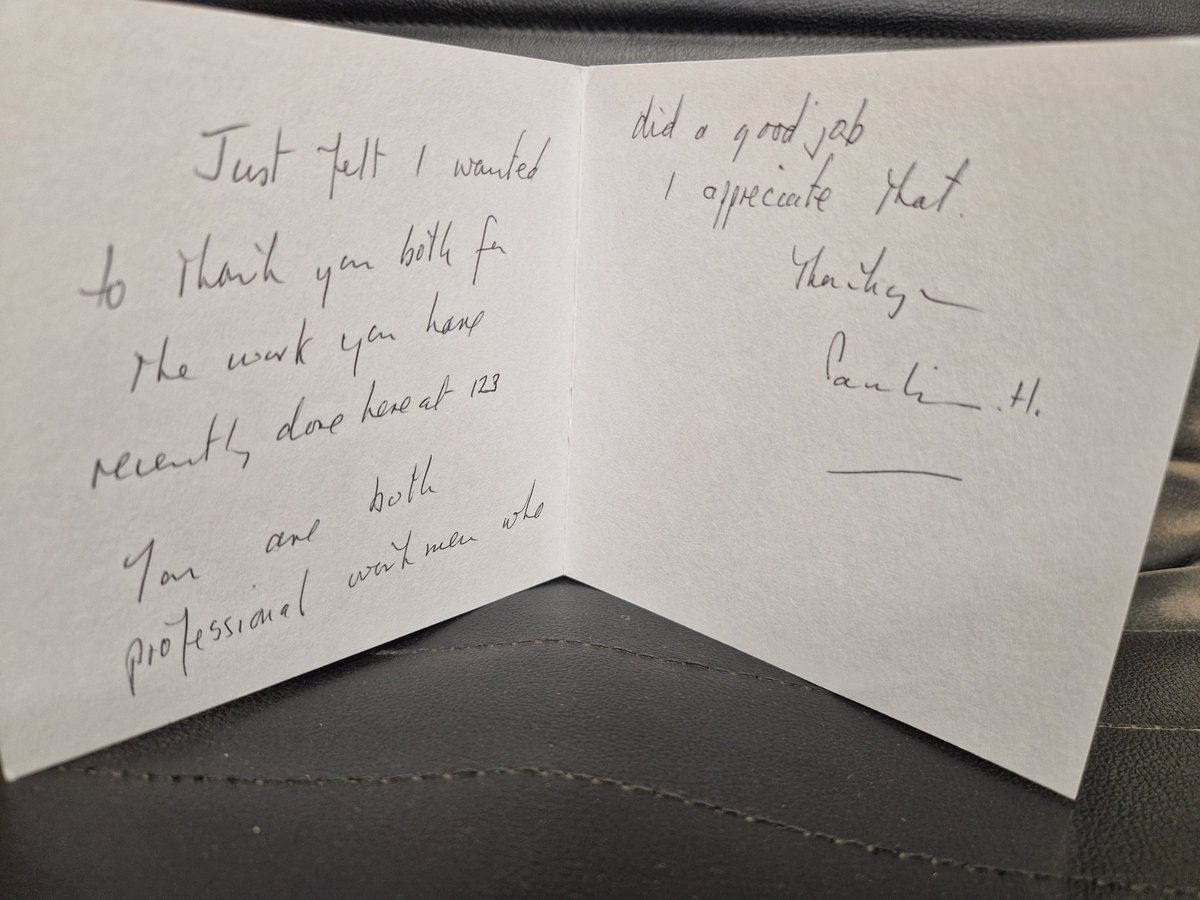 Just felt I wanted
to thank you both for
the work you have
recently done here at 123
You are both
professional workmen who
did a good job
I appreciate that.
Thankyou
Pauline. H.